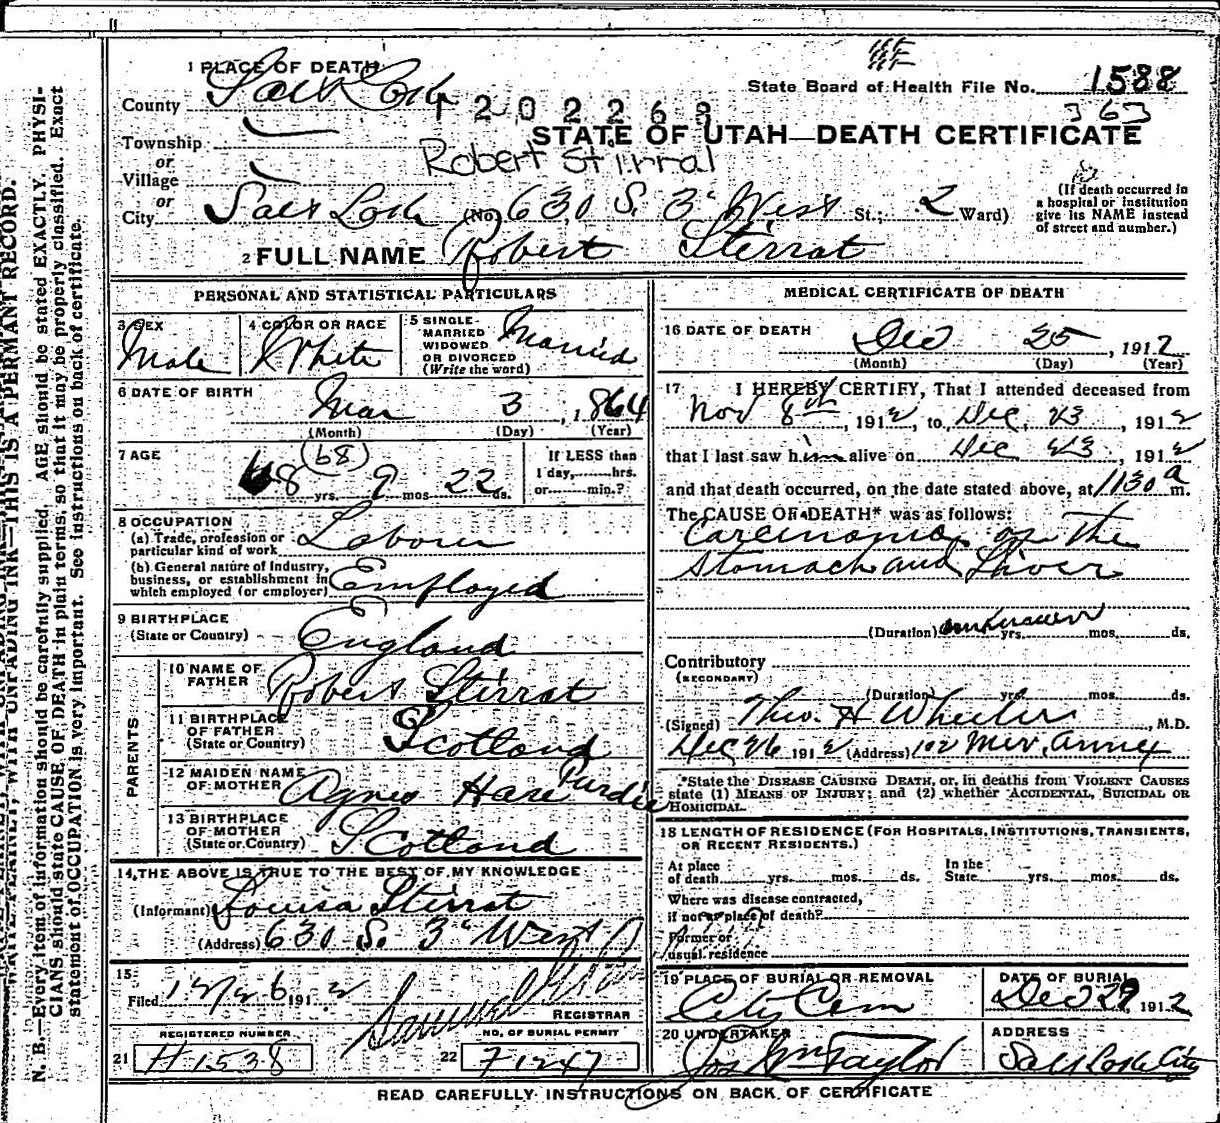 1 PLACE OF DEATH
State Board of Health File No. 1588
County Salt Lake
1202263
363
STATE OF UTAH—DEATH CERTIFICATE
Township
or
Robert Stirral
Village
or
City Salt Lake (No. 630 S. 3d West St.; 2 Ward)
(If death occurred in
a hospital or institution
give its NAME instead
of street and number.)
2 FULL NAME Robert Stirrat
PERSONAL AND STATISTICAL PARTICULARS
3 SEX
Male
4 COLOR OR RACE
White
5 SINGLE-
MARRIED
WIDOWED
OR DIVORCED
(Write the word)
Married
6 DATE OF BIRTH
Mar 3, 1864
(Month) (Day) (Year)
7 AGE
(68)
8 yrs. 9 mos 22 ds.
If LESS than
1 day, hrs.
or min.?
8 OCCUPATION
(a) Trade, profession or
particular kind of work
Laborer
(b) General nature of Industry,
business, or establishment in
which employed (or employer)
Employed
9 BIRTHPLACE
(State or Country)
England
PARENTS
10 NAME OF
FATHER
Robert Stirrat
11 BIRTHPLACE
OF FATHER
(State or Country)
Scotland
12 MAIDEN NAME
OF MOTHER
Agnes Hare Purdie
13 BIRTHPLACE
OF MOTHER
(State or Country)
Scotland
14 THE ABOVE IS TRUE TO THE BEST OF MY KNOWLEDGE
(Informant) Louisa Stirrat
(Address) 630 S. 3d West
15
Filed 12/26 1912
REGISTRAR
REGISTERED NUMBER
NO. OF BURIAL PERMIT
21 H1538
22 71247
MEDICAL CERTIFICATE OF DEATH
16 DATE OF DEATH
Dec 25, 1912
(Month) (Day) (Year)
17 I HEREBY CERTIFY, That I attended deceased from
Nov 8th, 1912, to Dec. 23, 1912
that I last saw him alive on Dec 23, 1912
and that death occurred, on the date stated above, at 1130 a m.
The CAUSE OF DEATH* was as follows:
Carcinoma of The
Stomach and Liver
(Duration) unknown yrs. mos. ds.
Contributory
(SECONDARY)
(Duration) yrs. mos. ds.
(Signed) Theo. H Wheeler, M.D.
Dec 26 1912 (Address) 102 Mer. Annex
*State the DISEASE CAUSING DEATH, or, in deaths from VIOLENT CAUSES
state (1) MEANS OF INJURY; and (2) whether ACCIDENTAL, SUICIDAL OR
HOMICIDAL.
18 LENGTH OF RESIDENCE (FOR HOSPITALS, INSTITUTIONS, TRANSIENTS,
OR RECENT RESIDENTS.)
At place
of death yrs. mos. ds.
In the
State yrs. mos. ds.
Where was disease contracted,
if not at place of death?
Former or
usual residence
19 PLACE OF BURIAL OR REMOVAL
City Cem
DATE OF BURIAL
Dec 29 1912
20 UNDERTAKER
Jos Wm Taylor
ADDRESS
Salt Lake City
READ CAREFULLY INSTRUCTIONS ON BACK OF CERTIFICATE
THIS IS A PERMANT RECORD.
N. B.—Every item of information should be carefully supplied. AGE should be stated EXACTLY. PHYSI-
CIANS should state CAUSE OF DEATH in plain terms, so that it may be properly classified. Exact
statement of OCCUPATION is very important. See instructions on back of certificate.